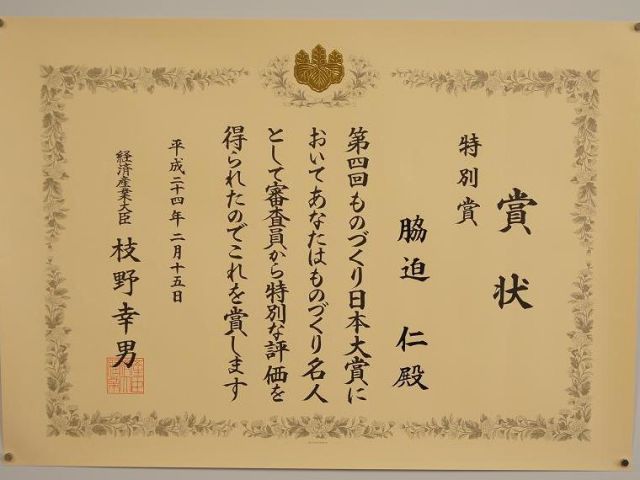 賞状
特別賞
脇迫 仁殿
第四回ものづくり日本大賞に
おいてあなたはものづくり名人
として審査員から特別な評価を
得られたのでこれを賞します
平成二十四年二月十五日
経済産業大臣 枝野幸男